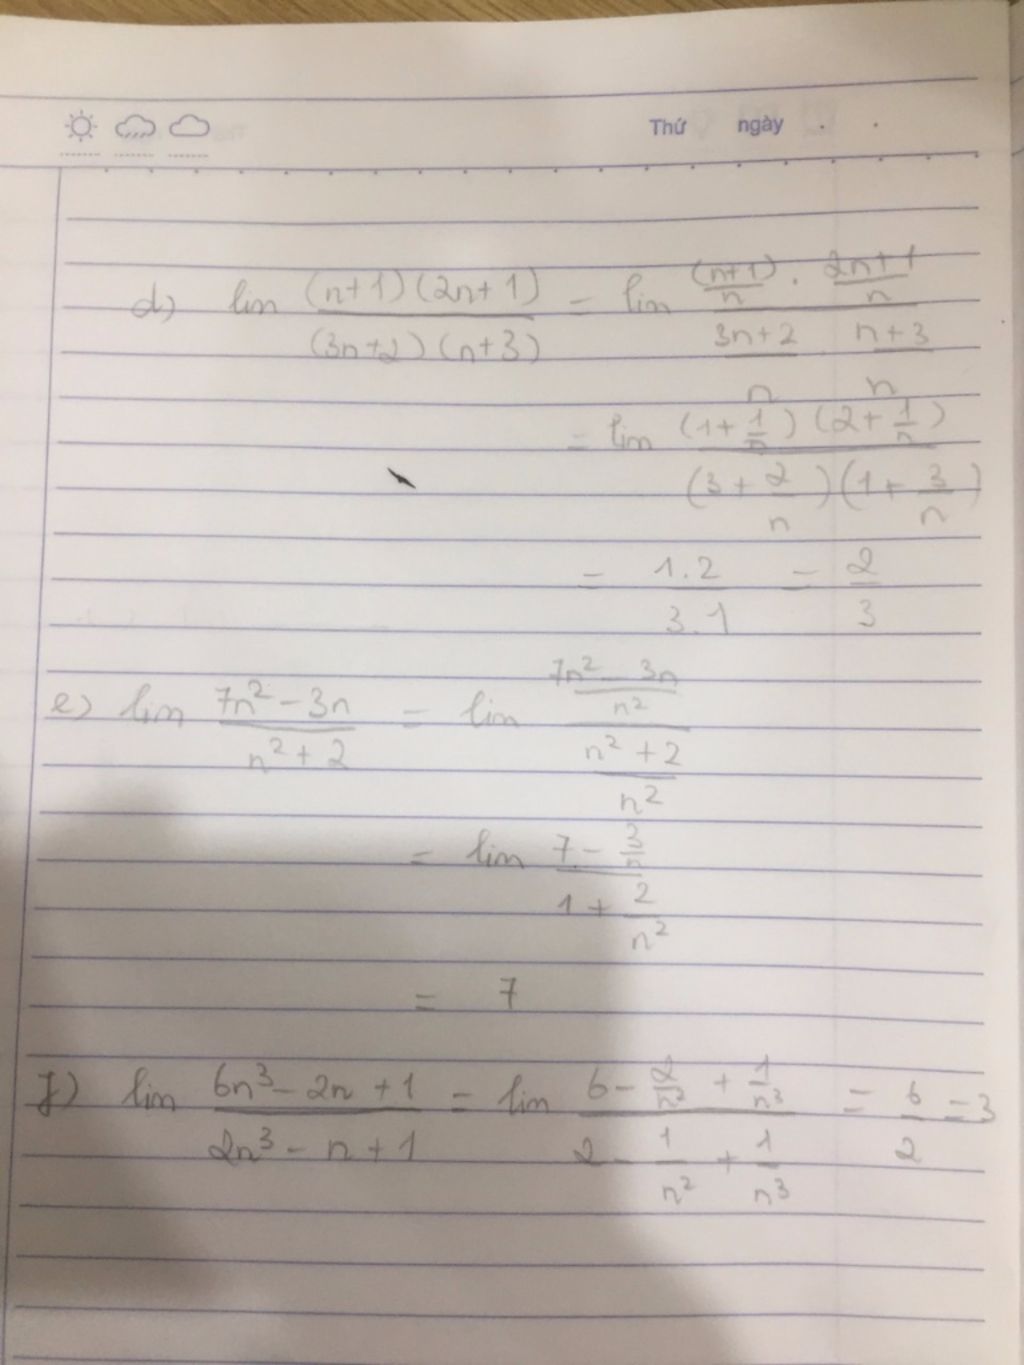 Thứ ngày . .
d) lim (n+1)(2n+1) / (3n+2)(n+3) = lim ((n+1)/n . (2n+1)/n) / ((3n+2)/n . (n+3)/n)
= lim (1+1/n)(2+1/n) / (3+2/n)(1+3/n)
= 1.2 / 3.1 = 2/3
e) lim (7n² - 3n) / (n² + 2) = lim ((7n² - 3n)/n²) / ((n² + 2)/n²)
= lim (7 - 3/n) / (1 + 2/n²)
= 7
f) lim (6n³ - 2n + 1) / (2n³ - n + 1) = lim (6 - 2/n² + 1/n³) / (2 - 1/n² + 1/n³) = 6/2 = 3